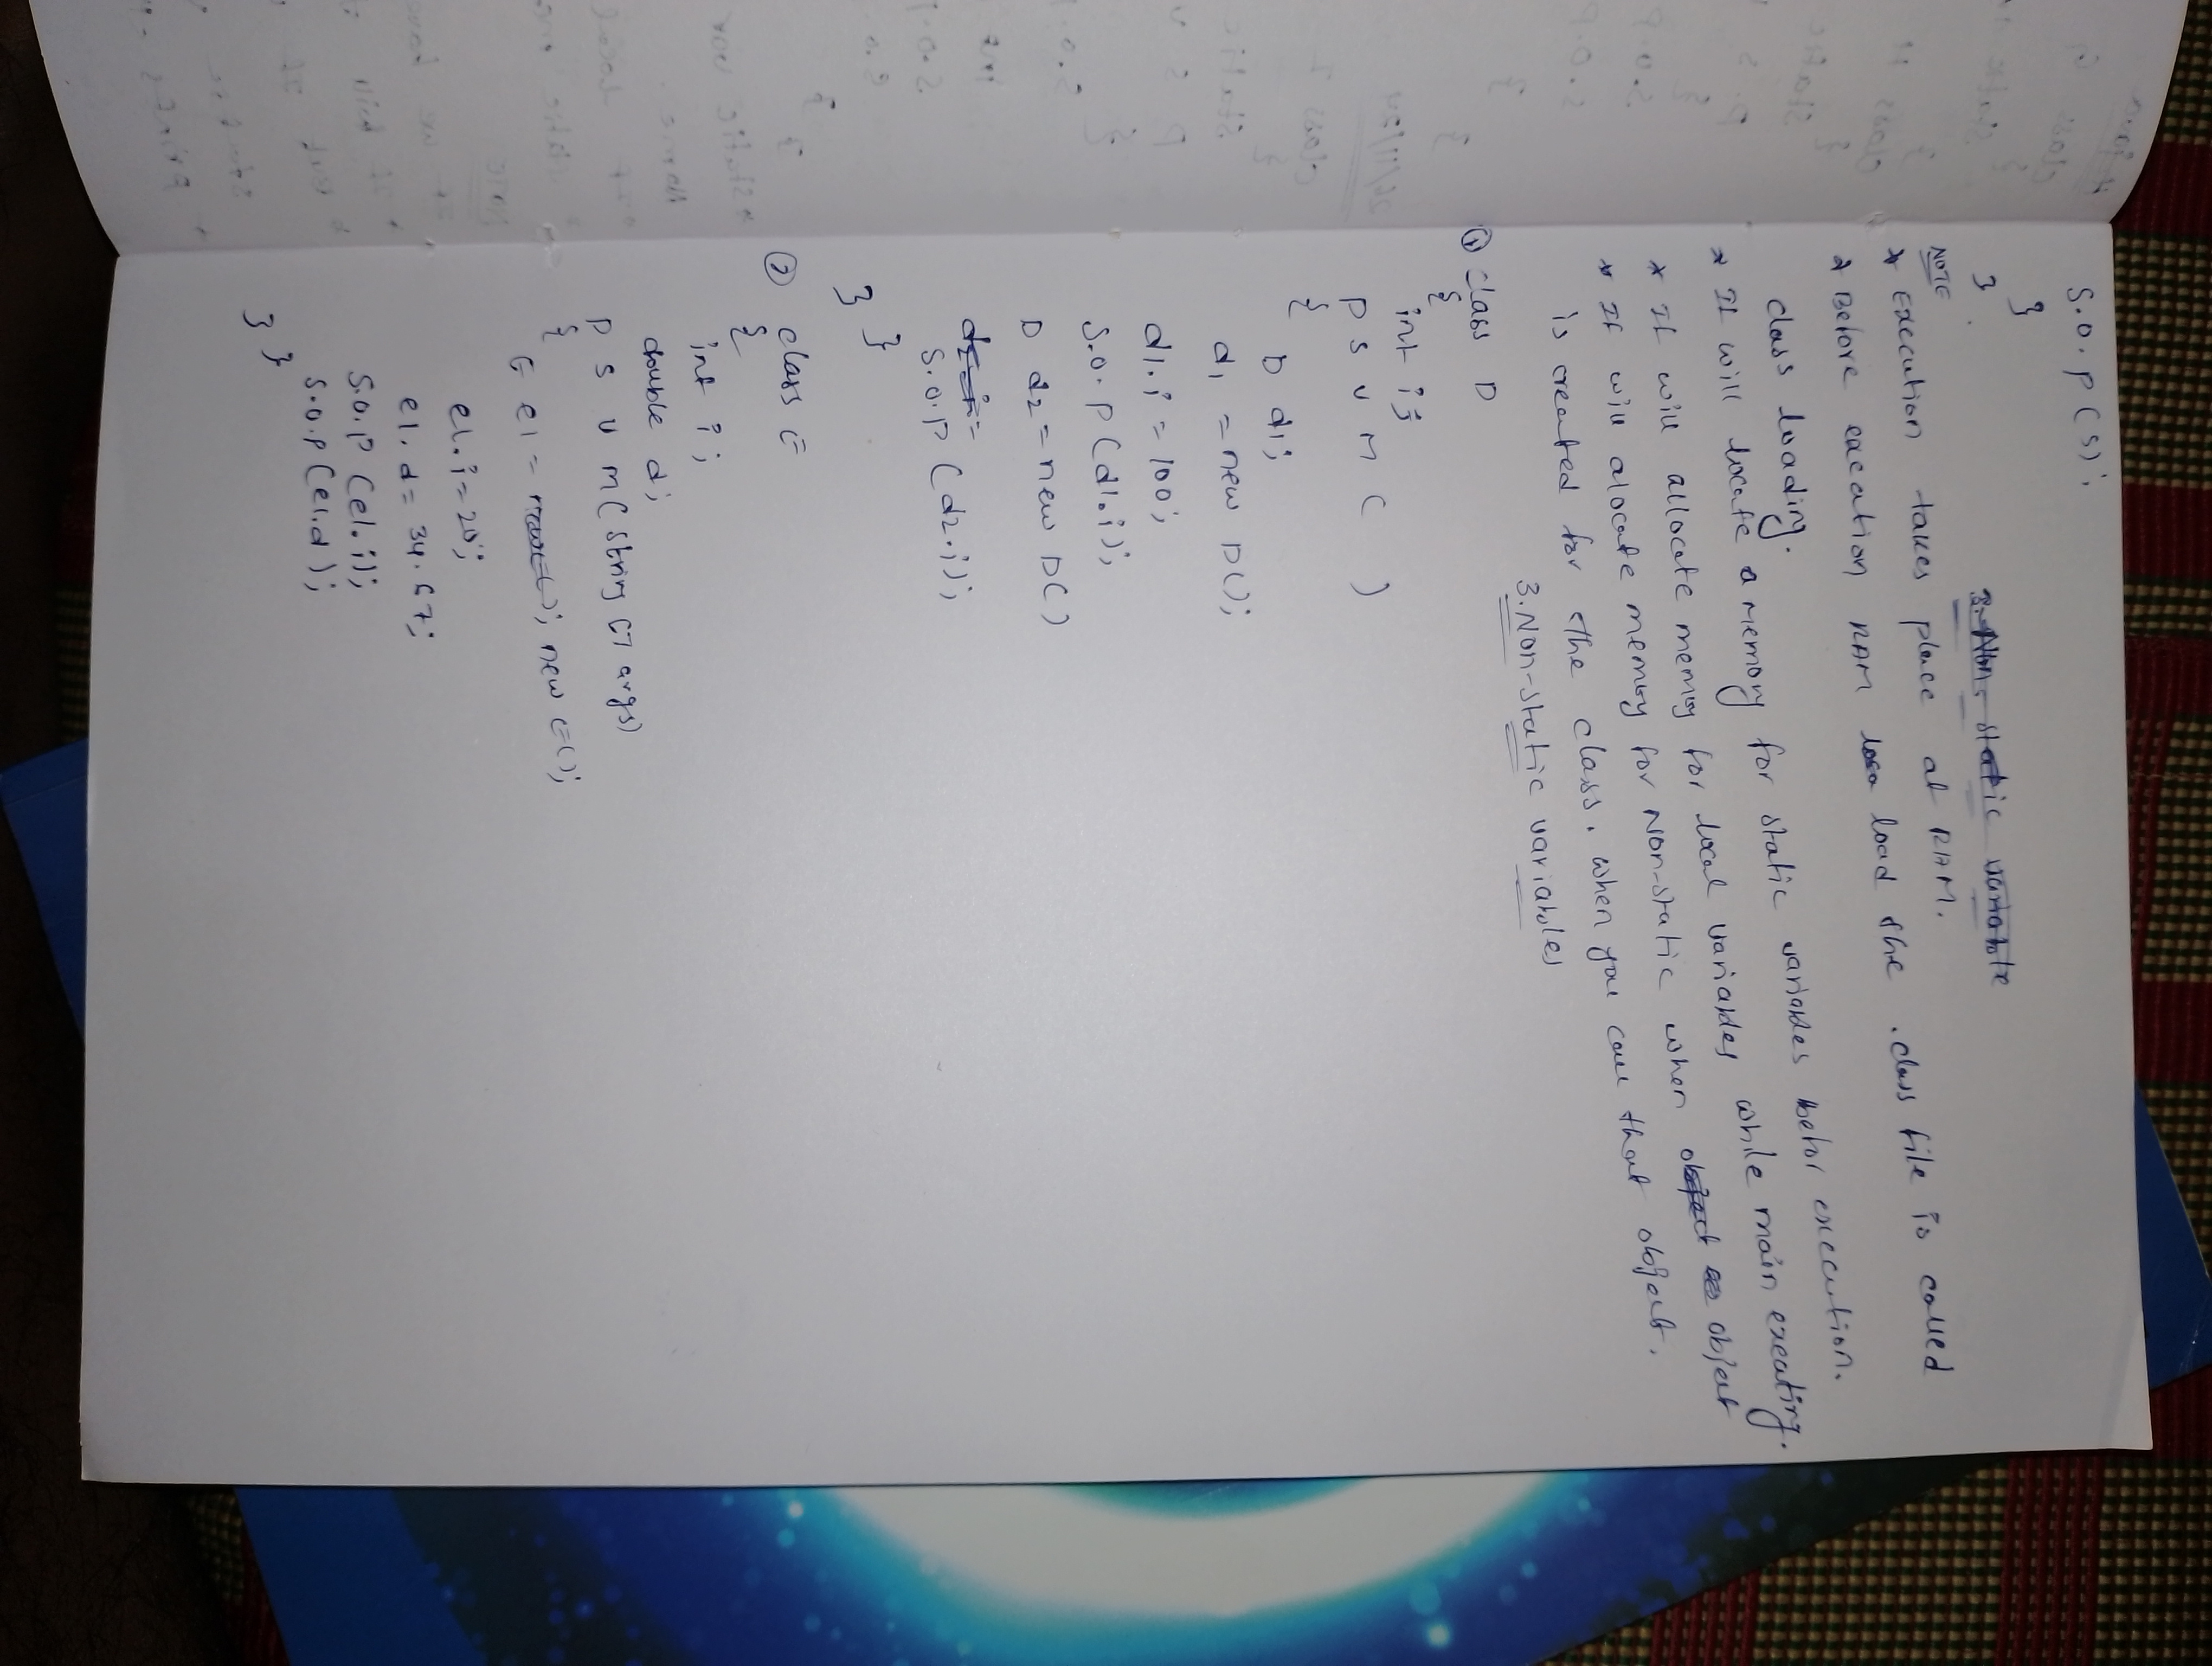 S.O.P(S);
}
}
NOTE
* Execution takes place at RAM.
* Before execution RAM load the .class file is called
class loading.
* It will locate a memory for static variables befor execution.
* It will allocate memory for local variables while main executing.
* It will alocate memory for Non-static when object
is created for the class. when you call that object.
3.Non-static variables
① class D
{
int i;
P S V M ( )
{
D d1;
d1 = new D();
d1.i = 100;
S.O.P(d1.i);
D d2 = new D()
S.O.P(d2.i);
}
}
② class E
{
int i;
double d;
P S V M(String [] args)
{
E e1 = new E();
e1.i=20;
e1.d= 34.67;
S.O.P(e1.i);
S.O.P(e1.d);
}
}